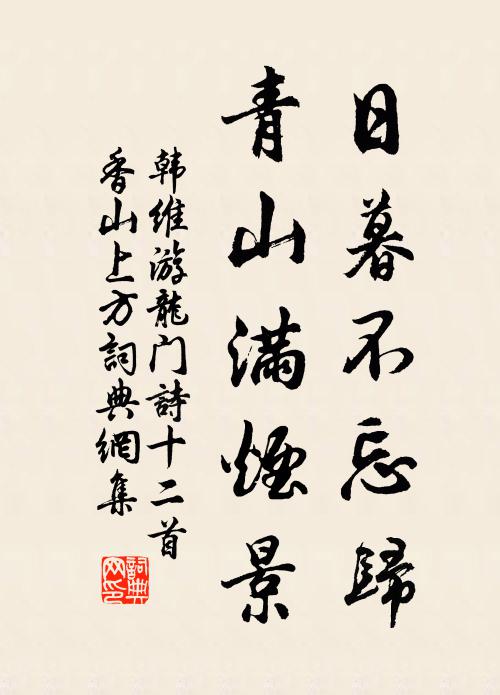 日暮不忘歸
青山滿煙景
韩維游龍门詩十二首
香山上方詞典網集
詞典网印